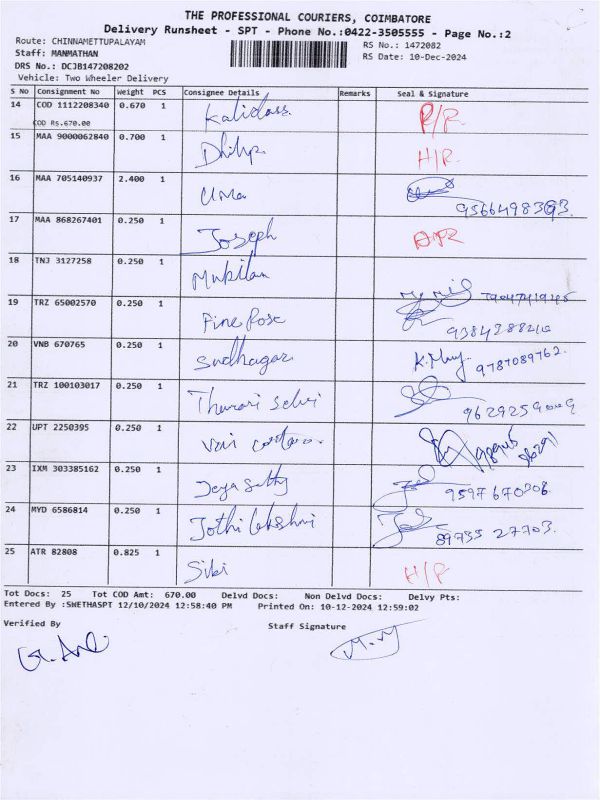 THE PROFESSIONAL COURIERS, COIMBATORE
Delivery Runsheet - SPT - Phone No.:0422-3505555 - Page No.:2
Route: CHINNAMETTUPALAYAM
RS No.: 1472082
Staff: MANMATHAN
RS Date: 10-Dec-2024
DRS No.: DCJB147208202
Vehicle: Two Wheeler Delivery
S No Consignment No Weight PCS Consignee Details Remarks Seal & Signature
14 COD 1112208340 0.670 1 Kalidass
COD Rs.670.00
15 MAA 9000062840 0.700 1 Dhilip H/R
16 MAA 705140937 2.400 1 Uma
9566498393
17 MAA 868267401 0.250 1 Joseph
18 TNJ 3127258 0.250 1 Mukilan
19 TRZ 65002570 0.250 1 Pine Rose
20 VNB 670765 0.250 1 Sudhagar 9787089762
21 TRZ 100103017 0.250 1 Selvi
22 UPT 2250395 0.250 1
23 IXM 303385162 0.250 1 9597670306
24 MYD 6586814 0.250 1 Jothi lakshmi 89735 27703
25 ATR 82808 0.825 1 Sibi H/R
Tot Docs: 25 Tot COD Amt: 670.00 Delvd Docs: Non Delvd Docs: Delvy Pts:
Entered By :SWETHASPT 12/10/2024 12:58:40 PM Printed On: 10-12-2024 12:59:02
Verified By Staff Signature
M.M